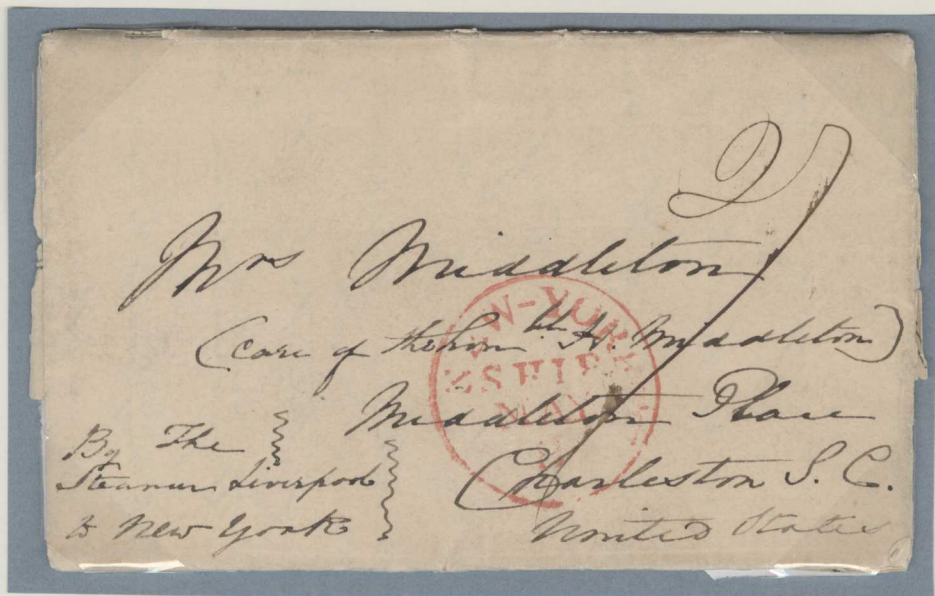 27
Mrs Middleton
(care of the Hon.ble H. Middleton)
Middleton Place
Charleston S. C.
United States
By The
Steamer Liverpool
to New York
NEW-YORK
SHIP
MAY